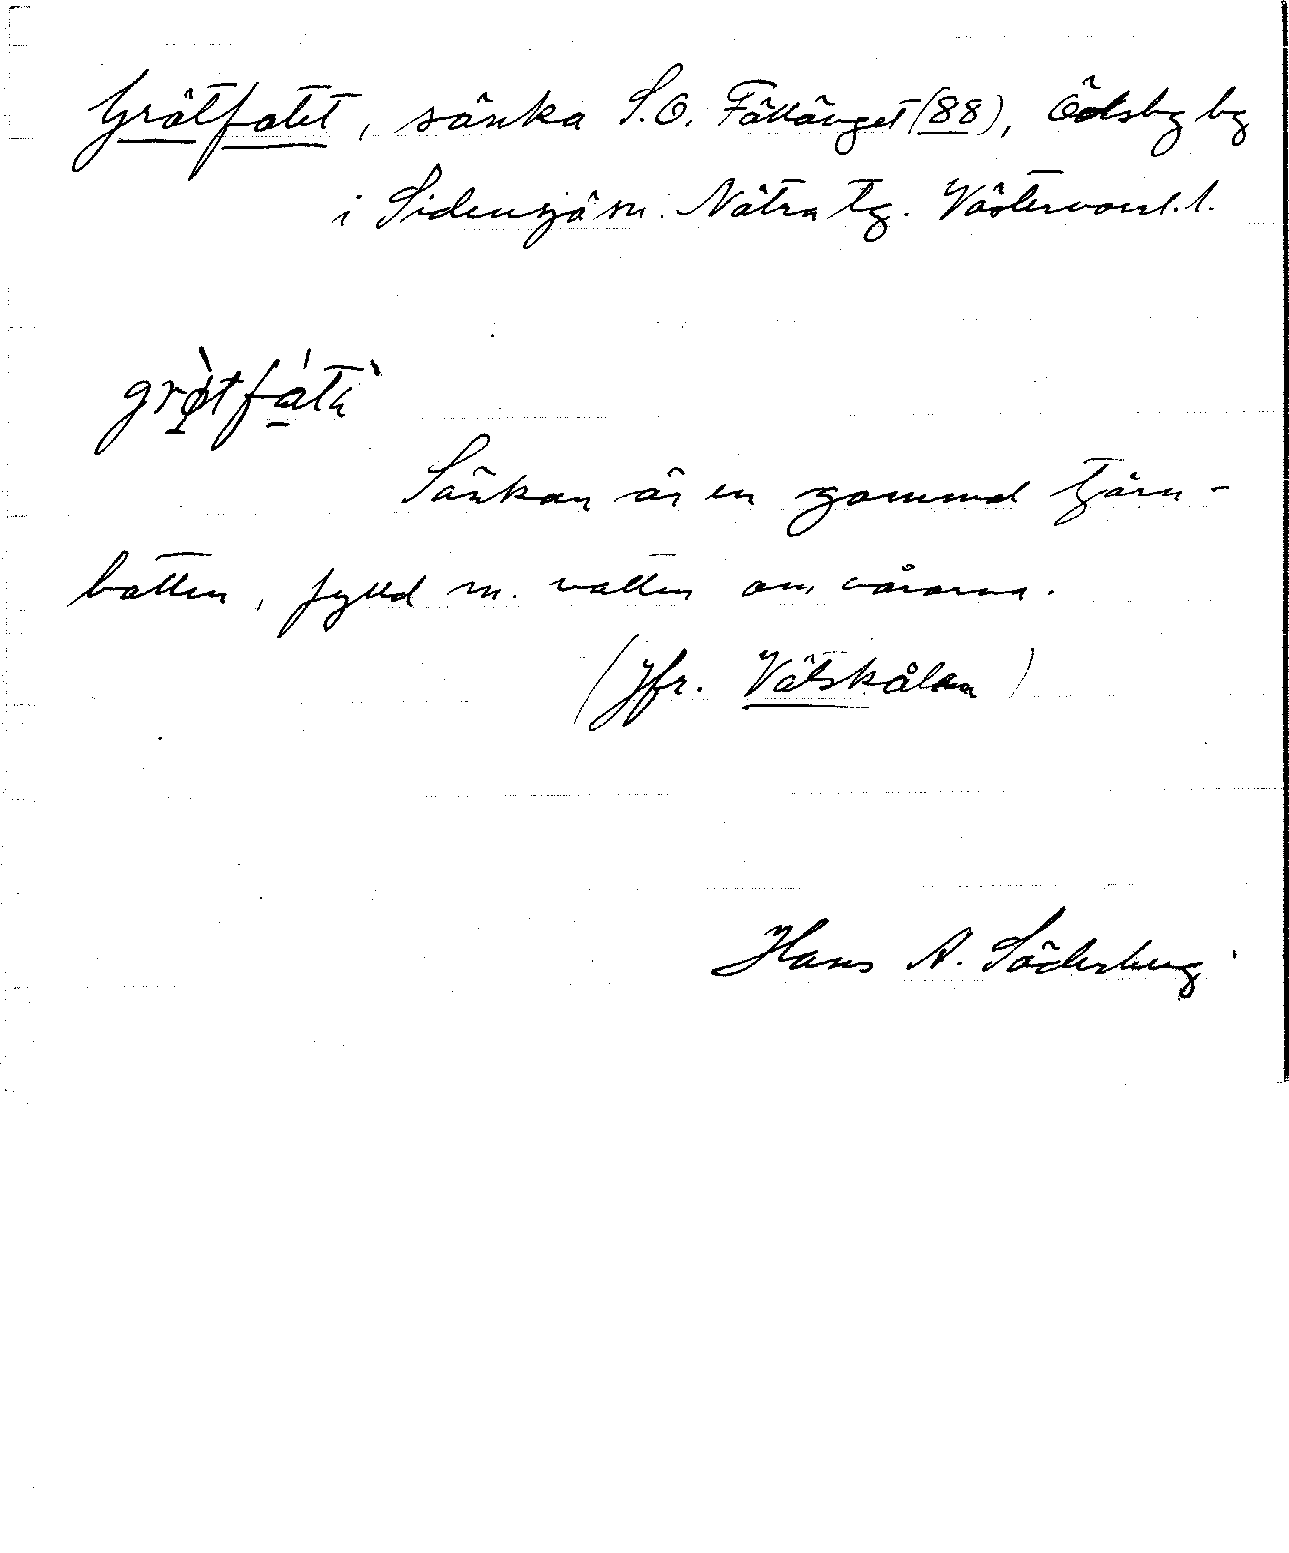 Grötfatet, sänka S.O. Fälläng​et (88), Ödsby by
i Sidensjö sn. Nätra tg. Västernorrl. l.
grø̀tfátà
Sänkan är en gammal tjärn-
botten, fylld m. vatten om vårarna.
(Jfr. Vätskålen)
Hans A. Söderberg